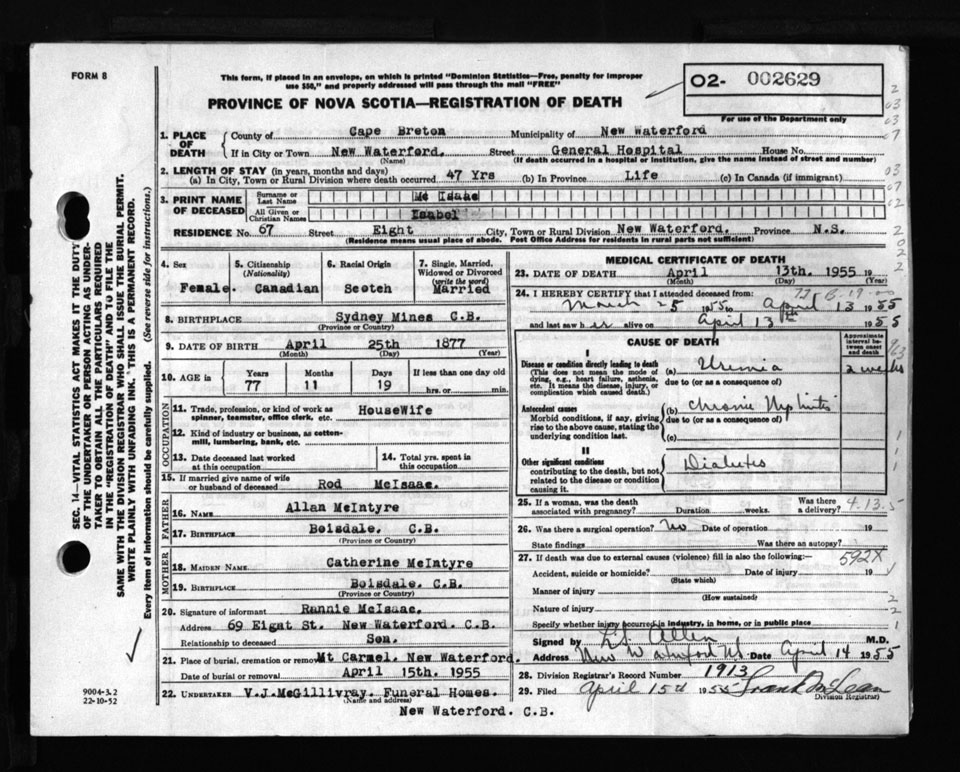 FORM 8
This form, if placed in an envelope, on which is printed "Dominion Statistics—Free, penalty for improper
use $50," and properly addressed will pass through the mail "FREE"
02- 002629
For use of the Department only
PROVINCE OF NOVA SCOTIA—REGISTRATION OF DEATH
1. PLACE OF DEATH
County of Cape Breton Municipality of New Waterford
If in City or Town New Waterford. Street General Hospital House No.
(Name) (If death occurred in a hospital or institution, give the name instead of street and number)
2. LENGTH OF STAY (in years, months and days)
(a) In City, Town or Rural Division where death occurred 47 Yrs (b) In Province Life (c) In Canada (if immigrant)
3. PRINT NAME OF DECEASED
Surname or Last Name Mc Isaac
All Given or Christian Names Isabel
RESIDENCE No. 67 Street Eight City, Town or Rural Division New Waterford. Province N.S.
(Residence means usual place of abode. Post Office Address for residents in rural parts not sufficient)
4. Sex Female.
5. Citizenship (Nationality) Canadian
6. Racial Origin Scotch
7. Single, Married, Widowed or Divorced (write the word) Married
8. BIRTHPLACE Sydney Mines C.B.
(Province or Country)
9. DATE OF BIRTH April 25th 1877
(Month) (Day) (Year)
10. AGE in Years 77 Months 11 Days 19 If less than one day old hrs. or min.
OCCUPATION
11. Trade, profession, or kind of work as spinner, teamster, office clerk, etc. HouseWife
12. Kind of industry or business, as cotton-mill, lumbering, bank, etc.
13. Date deceased last worked at this occupation
14. Total yrs. spent in this occupation
15. If married give name of wife or husband of deceased Rod McIsaac.
FATHER
16. NAME Allan McIntyre
17. BIRTHPLACE Boisdale. C.B.
(Province or Country)
MOTHER
18. MAIDEN NAME Catherine McIntyre
19. BIRTHPLACE Boisdale. C.B.
(Province or Country)
20. Signature of informant Rannie McIsaac.
Address 69 Eight St. New Waterford. C.B.
Relationship to deceased Son.
21. Place of burial, cremation or removal Mt Carmel. New Waterford.
Date of burial or removal April 15th. 1955
22. UNDERTAKER V.J.McGillivray. Funeral Homes.
(Name and address)
New Waterford. C.B.
MEDICAL CERTIFICATE OF DEATH
23. DATE OF DEATH April 13th. 1955 19
(Month) (Day) (Year)
24. I HEREBY CERTIFY that I attended deceased from
March 5 1955 to April 13 1955
and last saw her alive on April 13th 1955
CAUSE OF DEATH
Approximate interval between onset and death
I
Disease or condition directly leading to death
(This does not mean the mode of dying, e.g., heart failure, asthenia, etc. It means the disease, injury, or complication which caused death.)
(a) Uremia 2 weeks
due to (or as a consequence of)
Antecedent causes
Morbid conditions, if any, giving rise to the above cause, stating the underlying condition last.
(b) Chronic Nephritis
due to (or as a consequence of)
(c)
II
Other significant conditions
contributing to the death, but not related to the disease or condition causing it.
Diabetes
25. If a woman, was the death associated with pregnancy? Duration weeks. Was there a delivery?
4.13.5
26. Was there a surgical operation? No Date of operation 19
State findings Was there an autopsy?
27. If death was due to external causes (violence) fill in also the following:—
592X
Accident, suicide or homicide? Date of injury 19
(State which)
Manner of injury
(How sustained)
Nature of injury
Specify whether injury occurred in industry, in home, or in public place
Signed by Allen M.D.
Address New Waterford NS Date April 14 1955
28. Division Registrar's Record Number 1913
29. Filed April 15th 1955 Frank McLean
Division Registrar
9004-3.2
22-10-52
SEC. 14—VITAL STATISTICS ACT MAKES IT THE DUTY
OF THE UNDERTAKER OR PERSON ACTING AS UNDER-
TAKER TO OBTAIN ALL THE PARTICULARS REQUIRED
IN THE "REGISTRATION OF DEATH" AND TO FILE THE
SAME WITH THE DIVISION REGISTRAR WHO SHALL ISSUE THE BURIAL PERMIT.
WRITE PLAINLY WITH UNFADING INK. THIS IS A PERMANENT RECORD.
Every item of information should be carefully supplied. (See reverse side for instructions.)